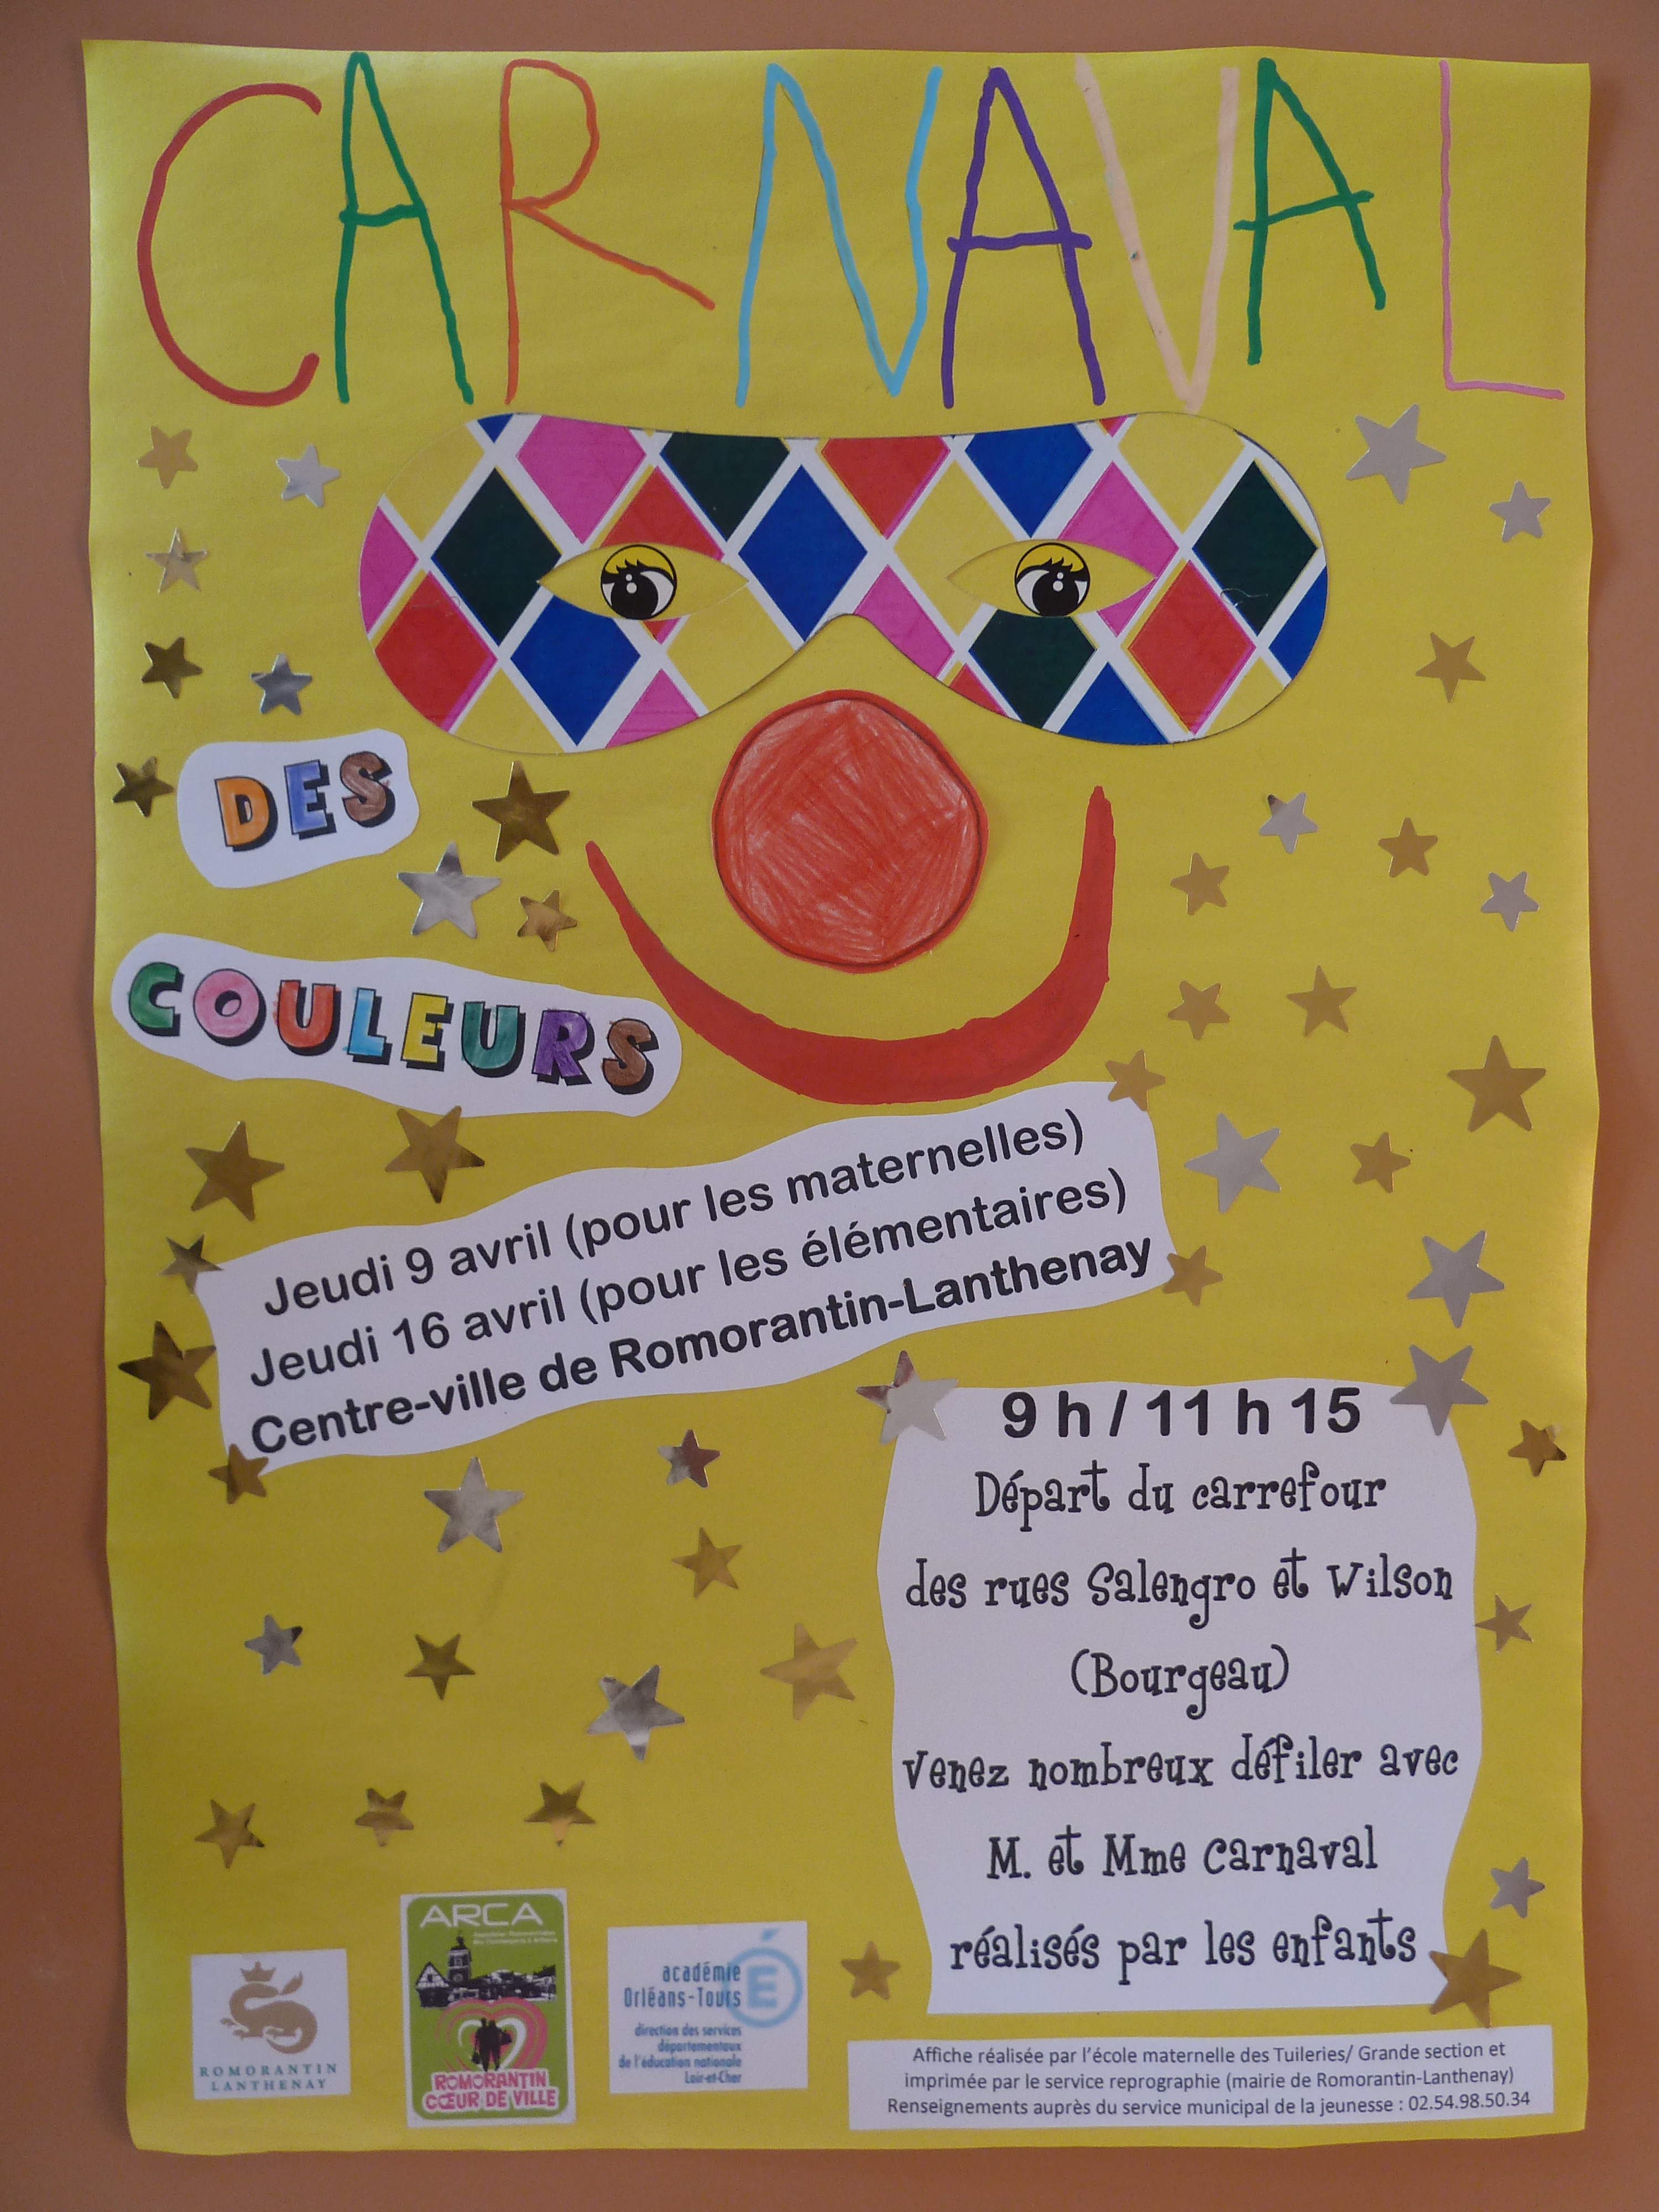 CARNAVAL
DES
COULEURS
Jeudi 9 avril (pour les maternelles)
Jeudi 16 avril (pour les élémentaires)
Centre-ville de Romorantin-Lanthenay
9 h / 11 h 15
Départ du carrefour
des rues Salengro et Wilson
(Bourgeau)
Venez nombreux défiler avec
M. et Mme Carnaval
réalisés par les enfants
ROMORANTIN
LANTHENAY
ARCA
ROMORANTIN
CŒUR DE VILLE
académie
Orléans-Tours
É
direction des services
départementaux
de l'éducation nationale
Loir-et-Cher
Affiche réalisée par l'école maternelle des Tuileries/ Grande section et
imprimée par le service reprographie (mairie de Romorantin-Lanthenay)
Renseignements auprès du service municipal de la jeunesse : 02.54.98.50.34